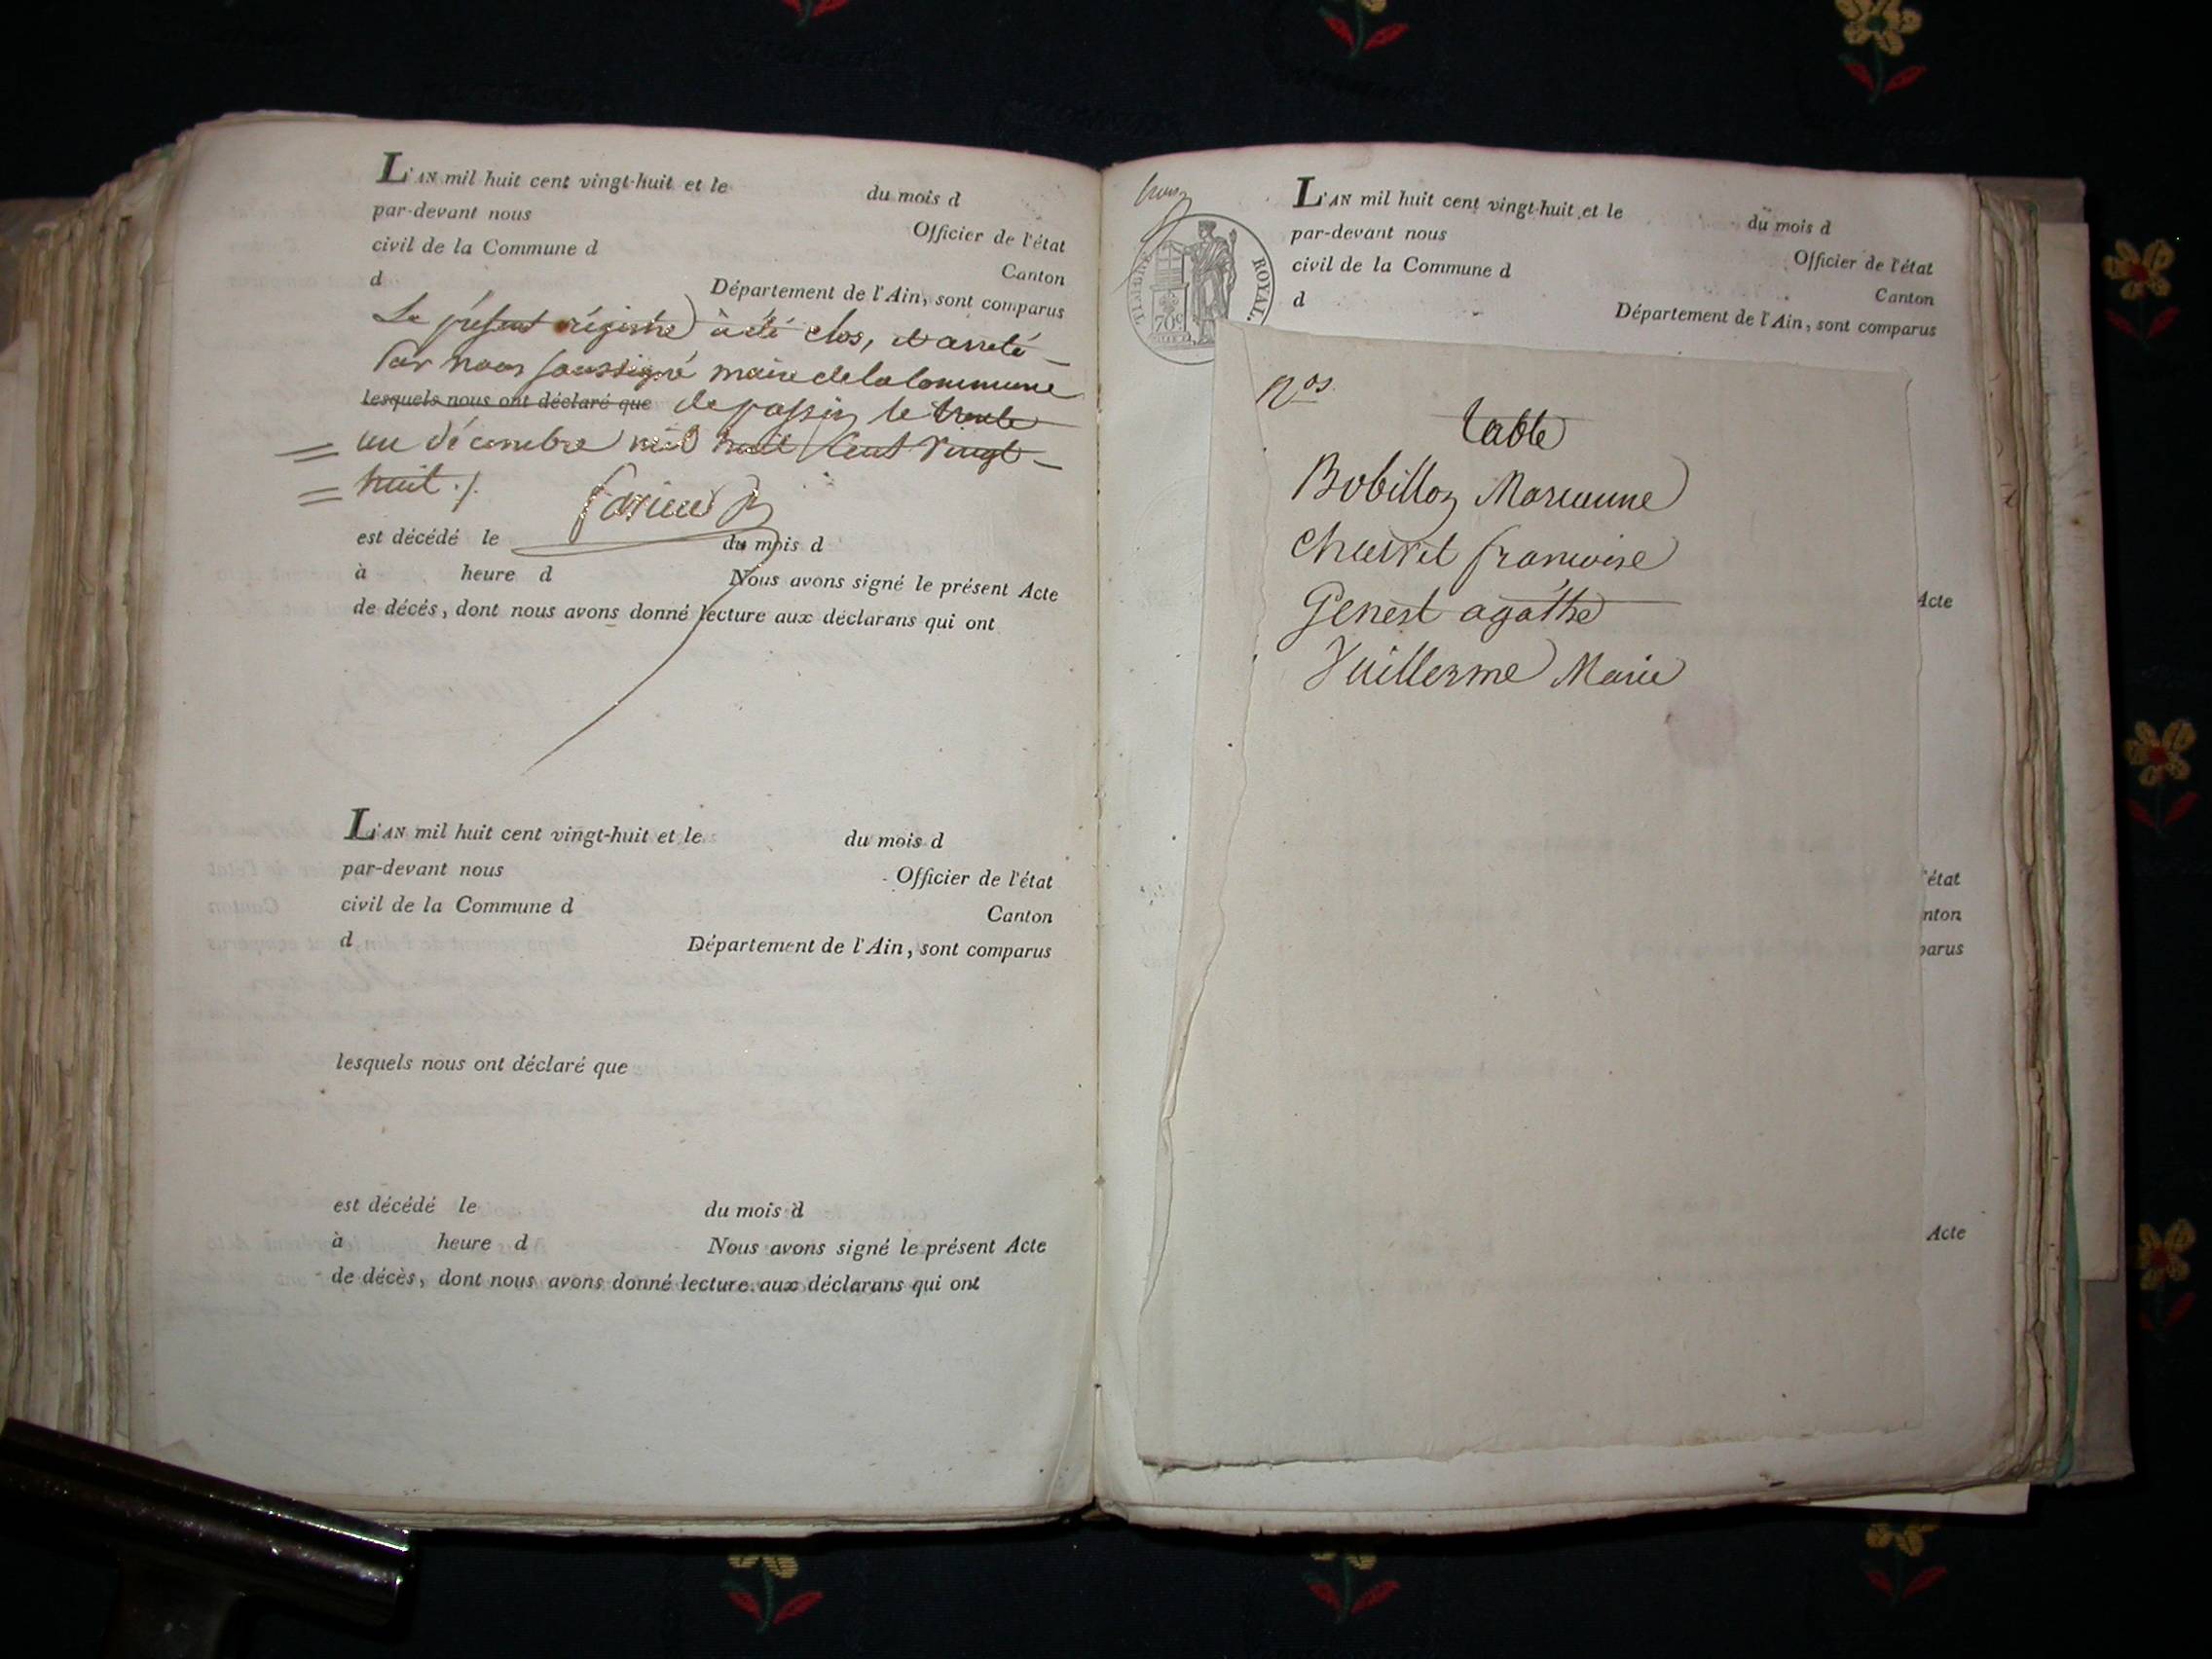 L'AN mil huit cent vingt-huit et le du mois d
par-devant nous Officier de l'état
civil de la Commune d Canton
d Département de l'Ain, sont comparus
Le présent régistre à été clos, et arreté
Par nous soussigné maire de la Commune
lesquels nous ont déclaré que de passin le trente
un décembre mil huit Cent vingt
huit ./.
est décédé le du mois d
à heure d Nous avons signé le présent Acte
de décés, dont nous avons donné lecture aux déclarans qui ont
L'AN mil huit cent vingt-huit et le du mois d
par-devant nous Officier de l'état
civil de la Commune d Canton
d Département de l'Ain, sont comparus
lesquels nous ont déclaré que
est décédé le du mois d
à heure d Nous avons signé le présent Acte
de décès, dont nous avons donné lecture aux déclarans qui ont
L'AN mil huit cent vingt-huit et le du mois d
par-devant nous Officier de l'état
civil de la Commune d Canton
d Département de l'Ain, sont comparus
TIMBRE ROYAL.
70c
Nos
table
Bobilloz Marianne
Charvet francoise
Genest agathe
Vuillerme Marie
Acte
'état
nton
parus
Acte